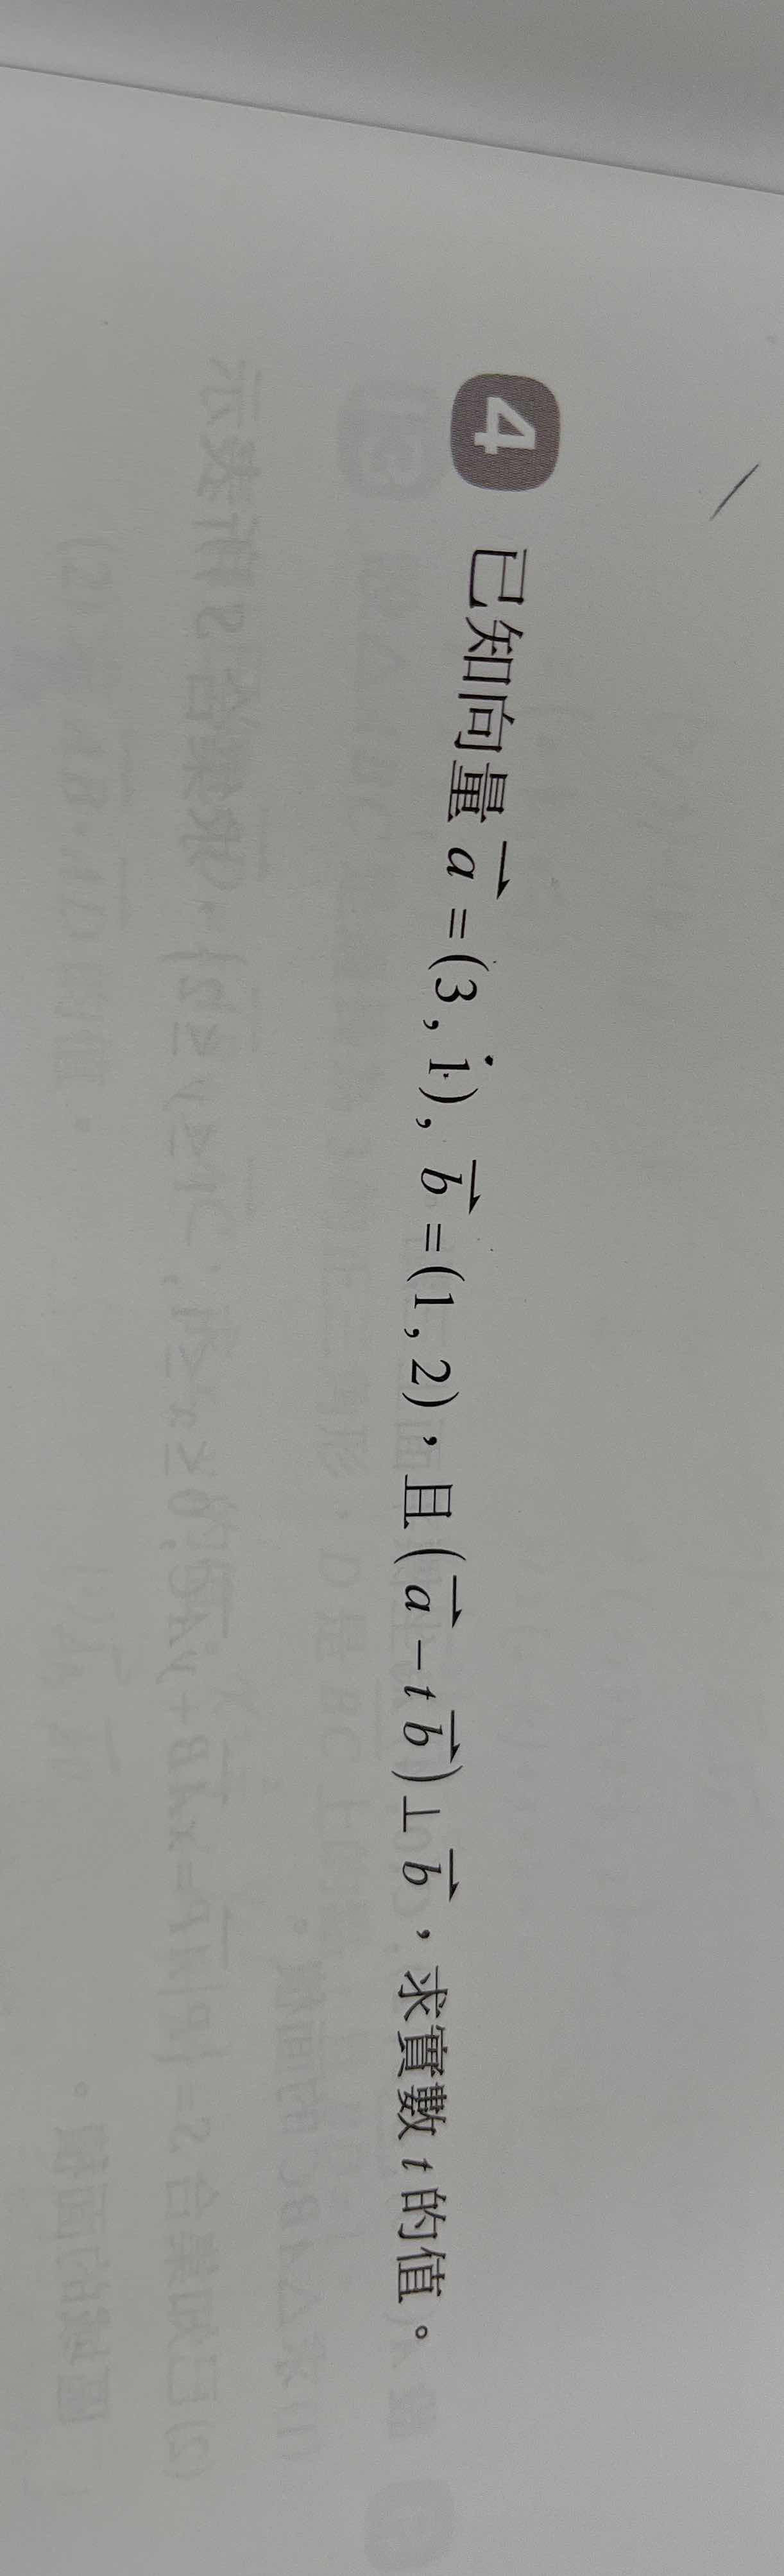 4 已知向量 a⃗ = (3, 1), b⃗ = (1, 2),且 (a⃗ − t b⃗) ⊥ b⃗,求實數 t 的值。